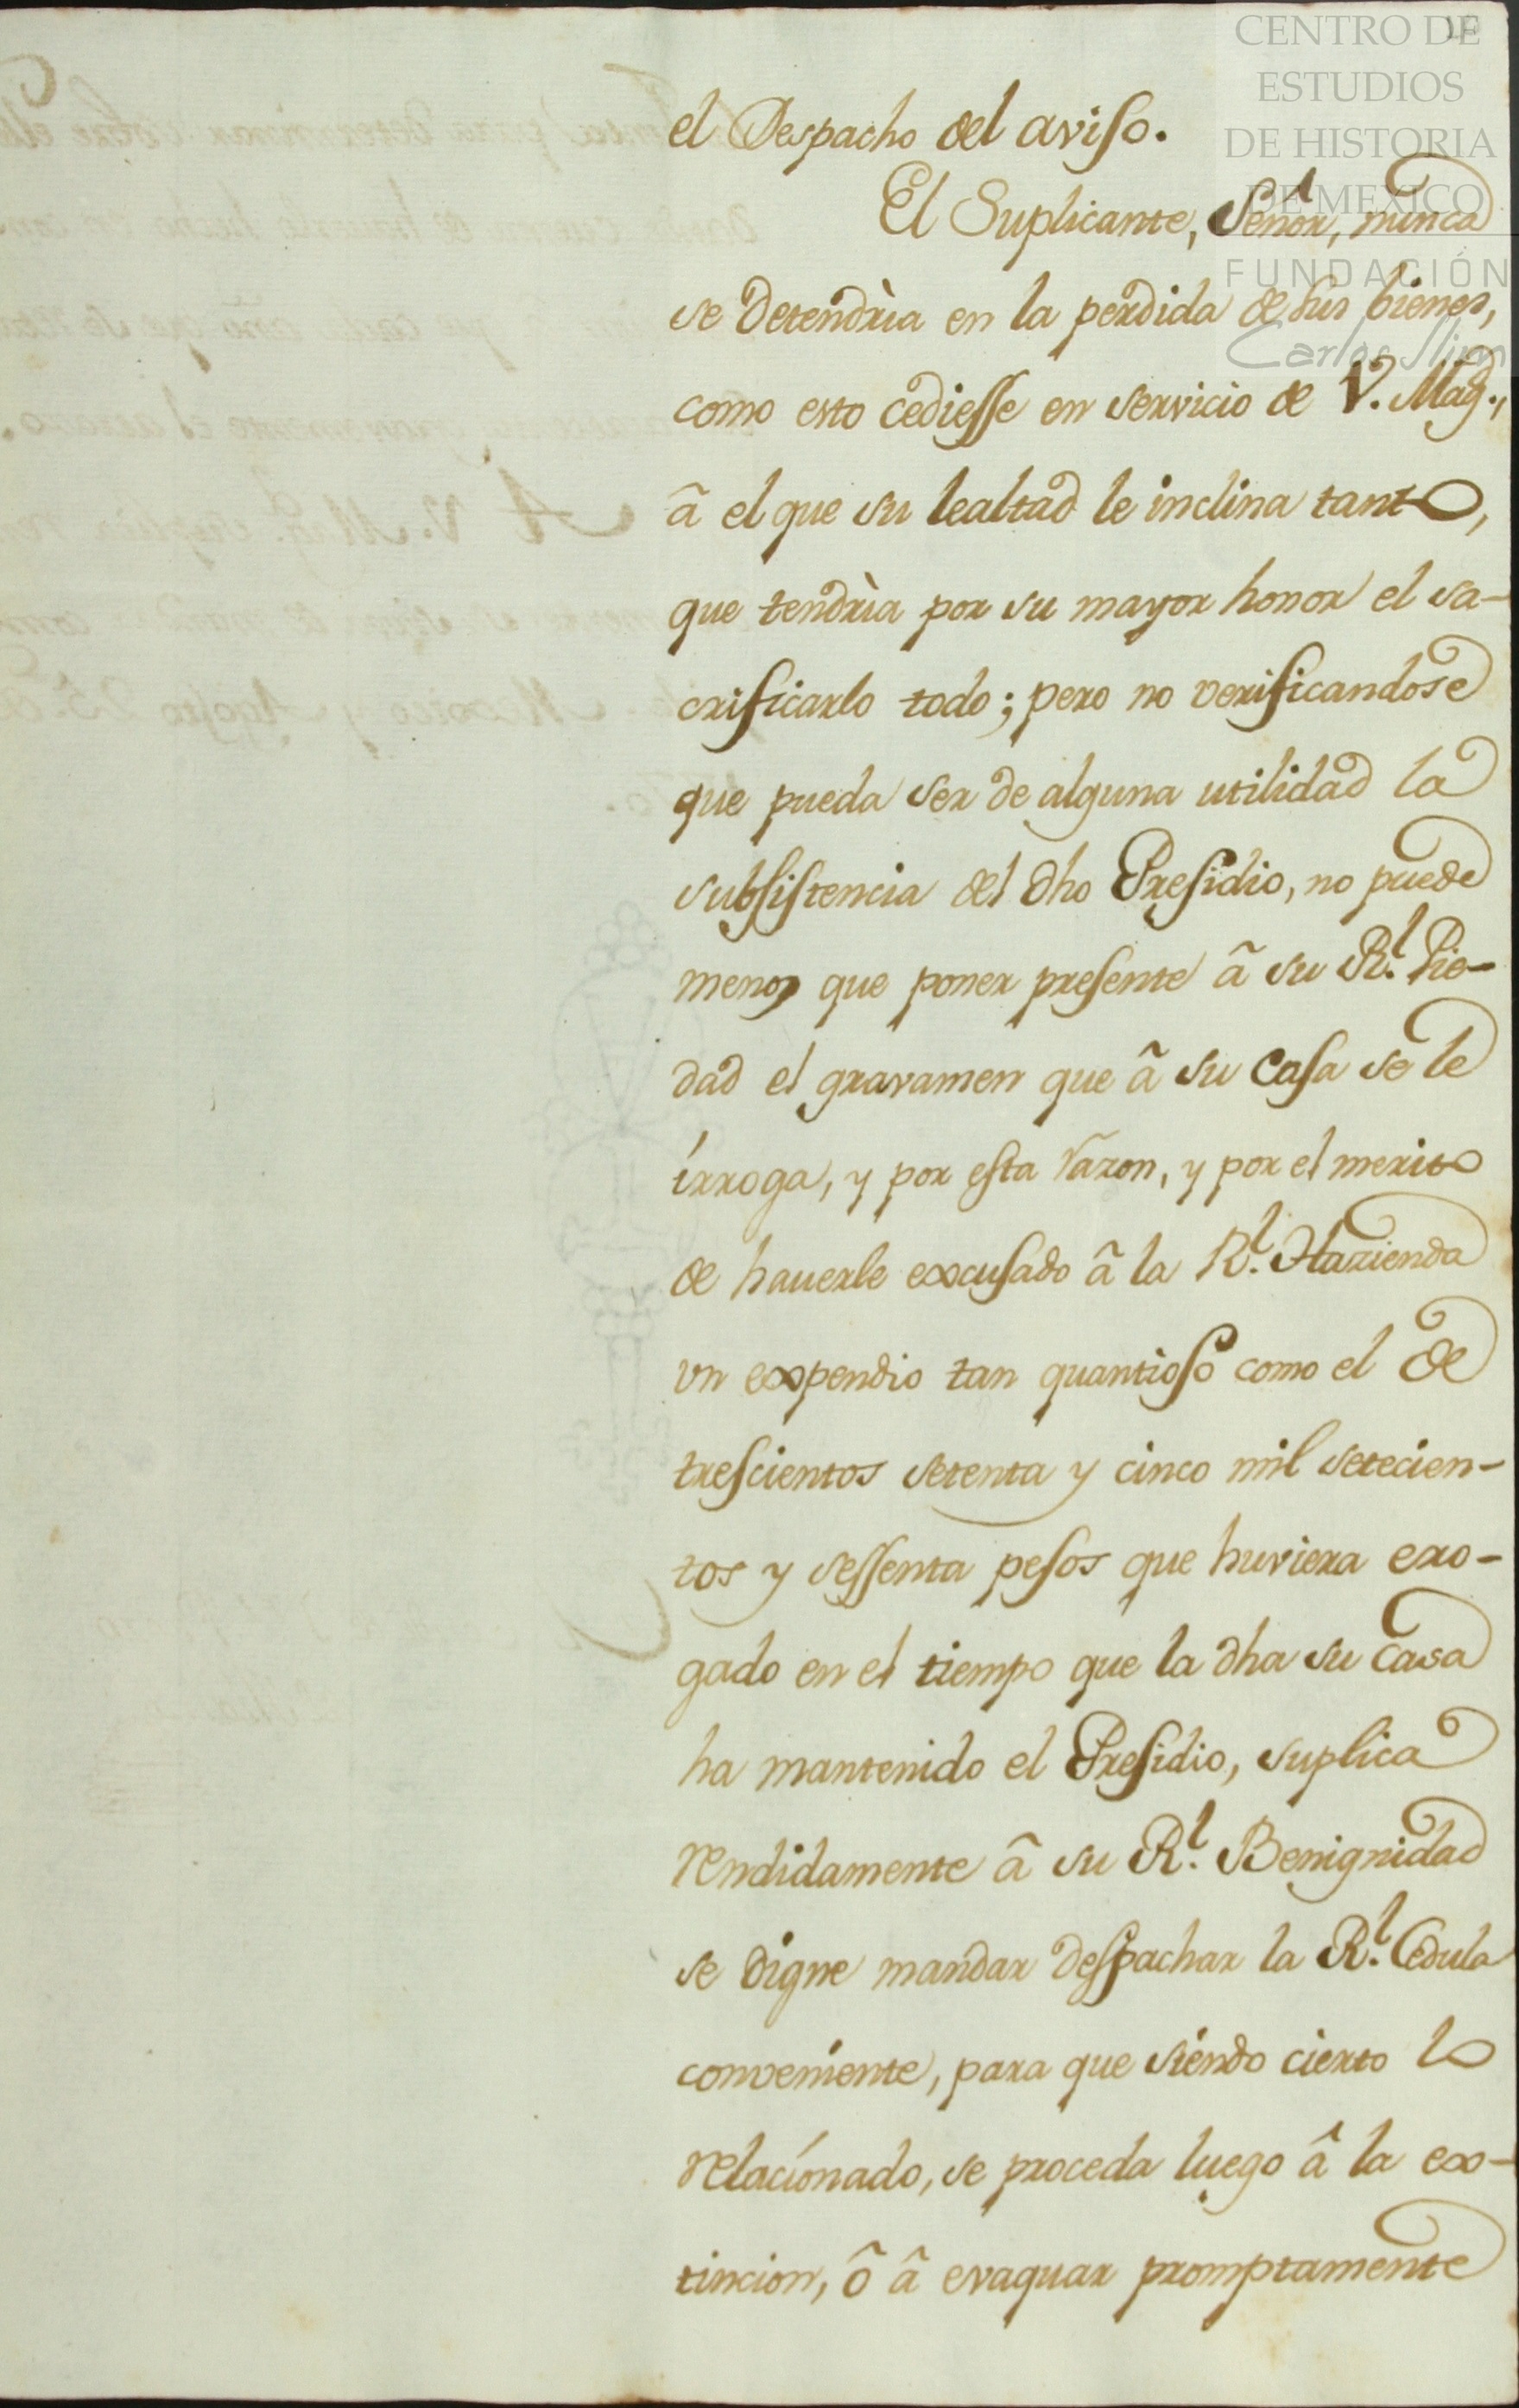 CENTRO DE
ESTUDIOS
DE HISTORIA
DE MEXICO
FUNDACIÓN
Carlos Slim
el Despacho del aviso.
El Suplicante, Señor, nunca
se detendrìa en la perdida de sus bienes,
como esto cediesse en servicio de V. Mag.,
â el que su lealtad le inclina tanto,
que tendrìa por su mayor honor el sa-
crificarlo todo; pero no verificandose
que pueda ser de alguna utilidad la
subsistencia del dho Presidio, no puede
menos que poner presente â su Rl. Pie-
dad el gravamen que â su Casa se le
írroga, y por esta razon, y por el merito
de hauerle excusado â la Rl. Hazienda
vn expendio tan quantioso como el de
trescientos setenta y cinco mil setecien-
tos y sessenta pesos que huviera ero-
gado en el tiempo que la dha su Casa
ha mantenido el Presidio, suplica
rendidamente â su Rl. Benignidad
se digne mandar despachar la Rl. Cedula
conveniente, para que siéndo cierto lo
relacíonado, se proceda luego â la ex-
tincion, ô â evaquar promptamente